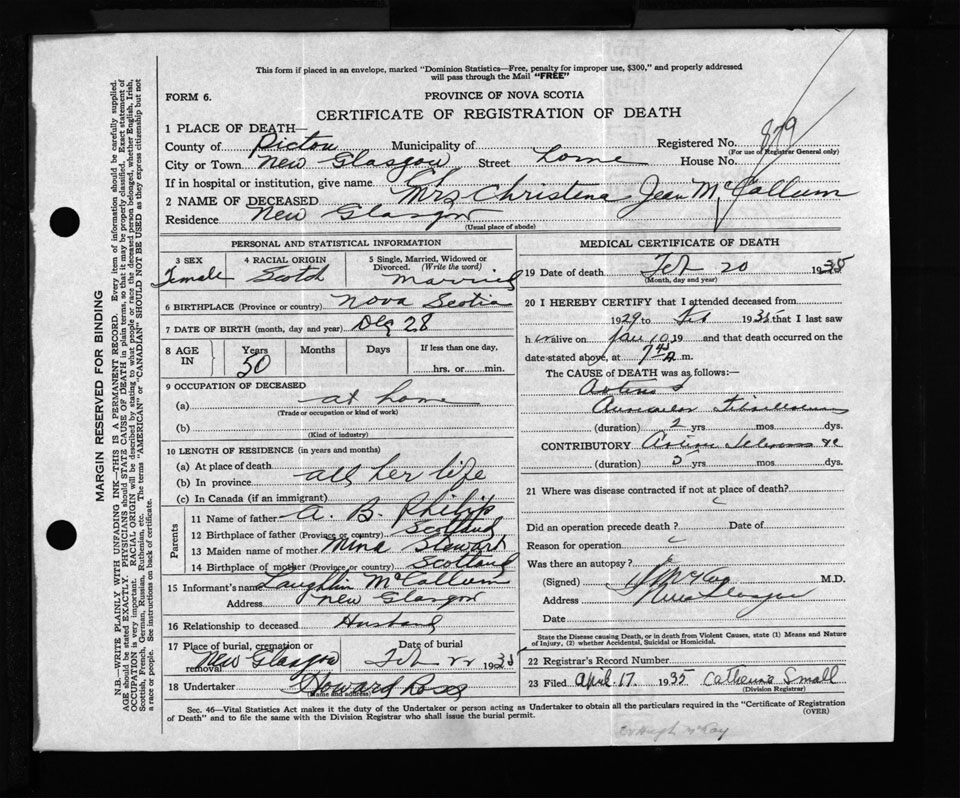 This form if placed in an envelope, marked "Dominion Statistics—Free, penalty for improper use, $300," and properly addressed
will pass through the Mail "FREE"
FORM 6.
PROVINCE OF NOVA SCOTIA
CERTIFICATE OF REGISTRATION OF DEATH
1 PLACE OF DEATH—
County of Pictou Municipality of Registered No. 879
(For use of Registrar General only)
City or Town New Glasgow Street Lorne House No.
If in hospital or institution, give name
2 NAME OF DECEASED Mrs Christena Jean McCallum
Residence New Glasgow
(Usual place of abode)
PERSONAL AND STATISTICAL INFORMATION
3 SEX 4 RACIAL ORIGIN 5 Single, Married, Widowed or
Divorced. (Write the word)
Female Scotch Married
6 BIRTHPLACE (Province or country) Nova Scotia
7 DATE OF BIRTH (month, day and year) Dec 28
8 AGE IN Years Months Days If less than one day,
50 hrs. or min.
9 OCCUPATION OF DECEASED
(a) at home
(Trade or occupation or kind of work)
(b)
(Kind of industry)
10 LENGTH OF RESIDENCE (in years and months)
(a) At place of death
(b) In province all her life
(c) In Canada (if an immigrant)
Parents
11 Name of father A. B. Philip
12 Birthplace of father (Province or country) Scotland
13 Maiden name of mother Mina Stewart
14 Birthplace of mother (Province or country) Scotland
15 Informant's name Laughlin McCallum
Address New Glasgow
16 Relationship to deceased Husband
17 Place of burial, cremation or removal Date of burial
New Glasgow Feb 22 1935
18 Undertaker Howard Ross
(Name and address)
MEDICAL CERTIFICATE OF DEATH
19 Date of death Feb 20 1935
(Month, day and year)
20 I HEREBY CERTIFY that I attended deceased from
1929 to Feb 1935 that I last saw
h er alive on Jan 10, 19 and that death occurred on the
date stated above, at 7 45 a m.
The CAUSE of DEATH was as follows:—
(duration) 2 yrs mos. dys.
CONTRIBUTORY
(duration) 5 yrs mos. dys.
21 Where was disease contracted if not at place of death?
Did an operation precede death? Date of
Reason for operation
Was there an autopsy?
(Signed) McKay M.D.
Address New Glasgow
Date
State the Disease causing Death, or in death from Violent Causes, state (1) Means and Nature
of Injury, (2) whether Accidental, Suicidal or Homicidal.
22 Registrar's Record Number
23 Filed April 17. 1935 Catherine Small
(Division Registrar)
Sec. 46—Vital Statistics Act makes it the duty of the Undertaker or person acting as Undertaker to obtain all the particulars required in the "Certificate of Registration
of Death" and to file the same with the Division Registrar who shall issue the burial permit. (OVER)
Dr Hugh McKay
MARGIN RESERVED FOR BINDING
N.B.—WRITE PLAINLY WITH UNFADING INK—THIS IS A PERMANENT RECORD. Every item of information should be carefully supplied.
AGE should be stated EXACTLY. PHYSICIANS should STATE CAUSE OF DEATH in plain terms, so that it may be properly classified. Exact statement of
OCCUPATION is very important. RACIAL ORIGIN will be described by stating to what people or race the deceased person belonged, whether English, Irish,
Scottish, French, German, Russian, Ruthenian, etc. The terms "AMERICAN" or "CANADIAN" SHOULD NOT BE USED as they express citizenship but not
a race or people. See instructions on back of certificate.